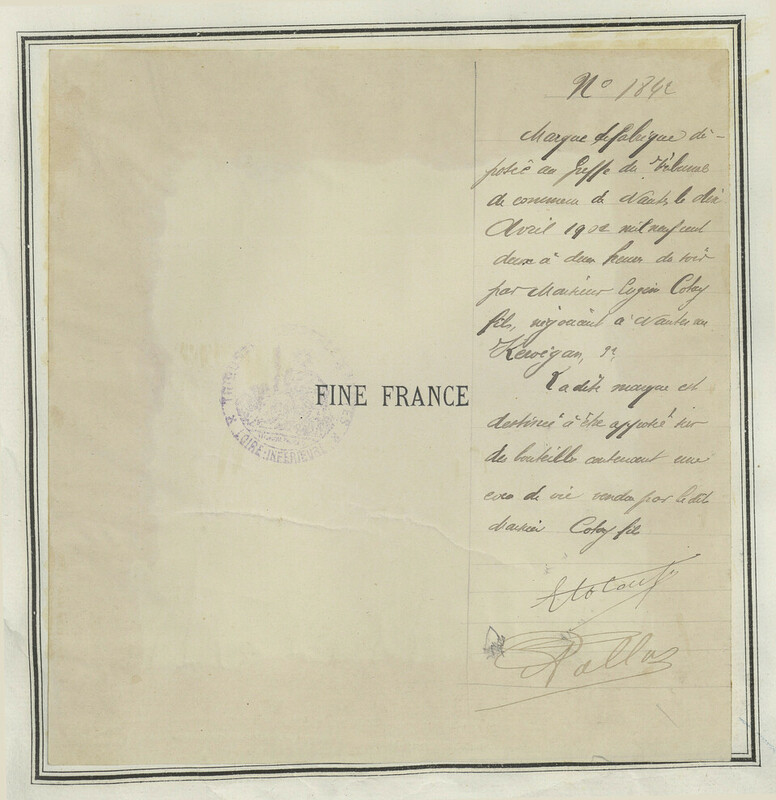 FINE FRANCE
LOIRE-INFÉRIEURE
No 1842
Marque de fabrique dé-
posée au greffe du Tribunal
de commerce de Nantes le dix
Avril 1902 mil neuf cent
deux à deux heures du soir
par Monsieur Eugène
fils, négociant à Nantes
Kervégan,
La dite marque est
destinée à être apposée sur
des bouteilles contenant une
eau de vie vendue par le dit
Monsieur fils